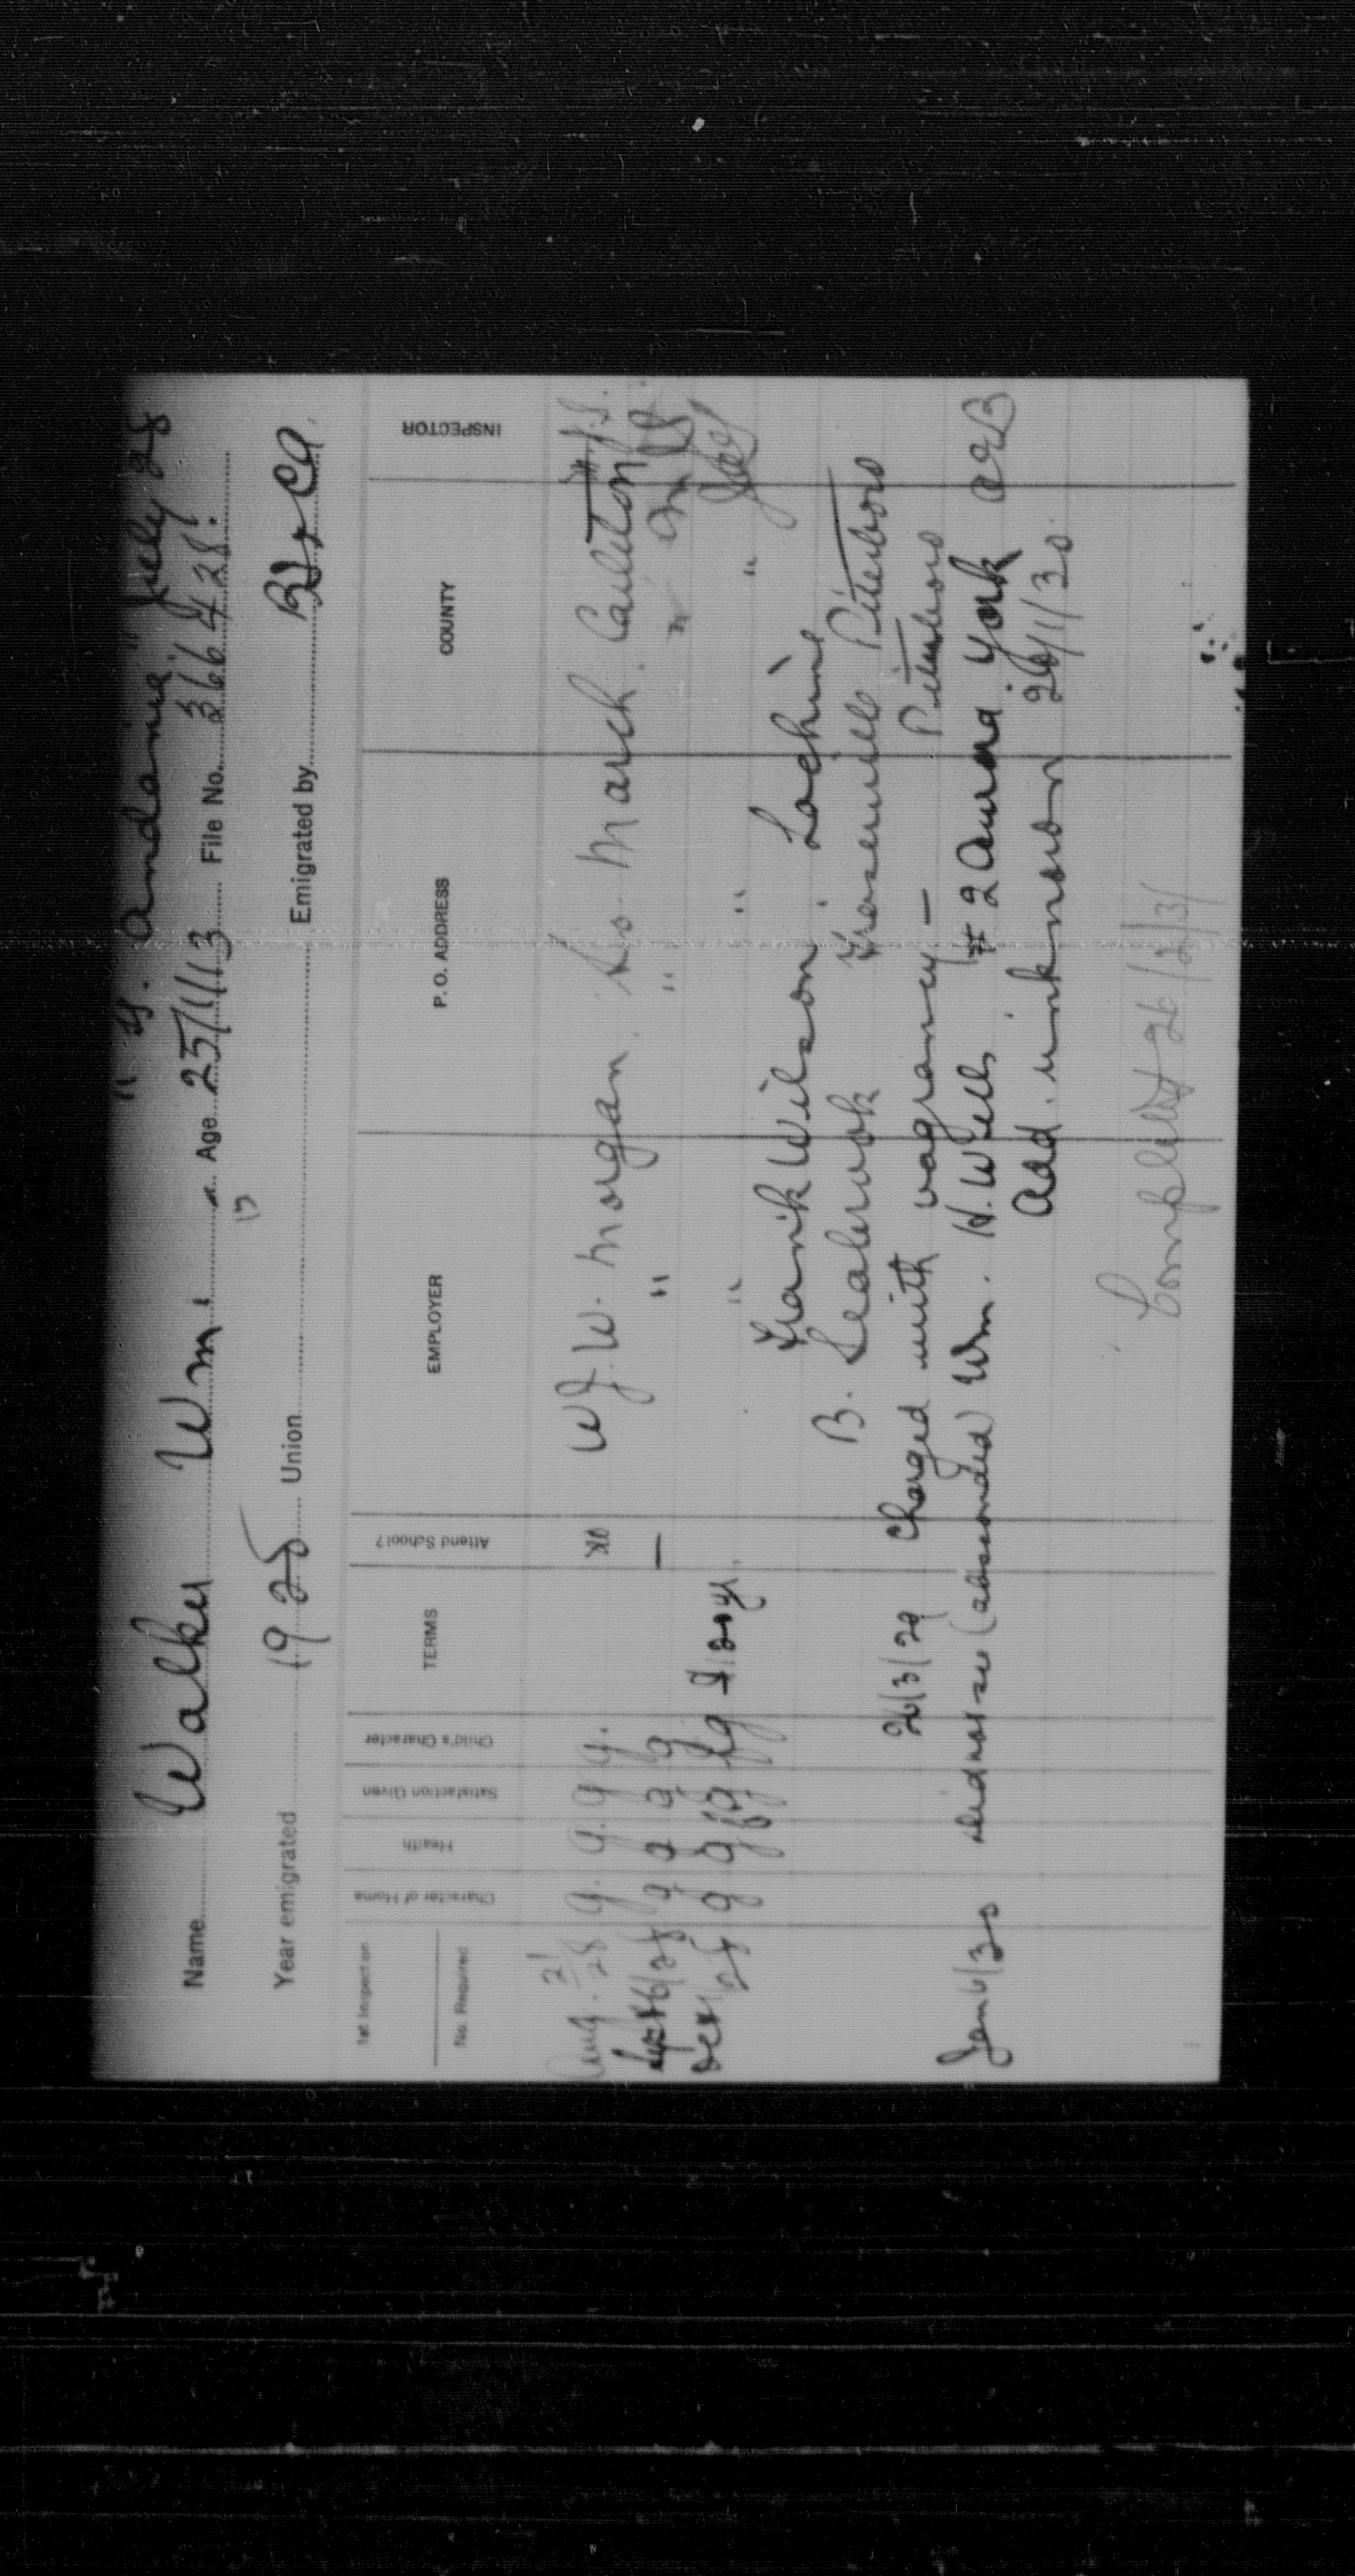 " Y. Andania" July 28
Name Walker Wm. Age 25/1/13 File No. 366428.
17
Year emigrated 1928 Union Emigrated by
1st Inspection No. Required Character of Home Health Satisfaction Given Child's Character TERMS Attend School? EMPLOYER P. O. ADDRESS COUNTY INSPECTOR
Aug. 21/28 g. g. g. g. W J. W. Morgan. So. March. Carleton
Sept 6/28 g g g g — " " "
Oct 1/28 g g fg fg " " "
Frank Wilson. Lachine
B. Seabrook Fraserville Peterboro
26/3/29 Charged with vagrancy — Peterboro
Jan 6/30 did not see (absconded) Wm. H. Wells. # 2 Aurora York
Add. unknown 26/1/30.
Completed 26/2/31